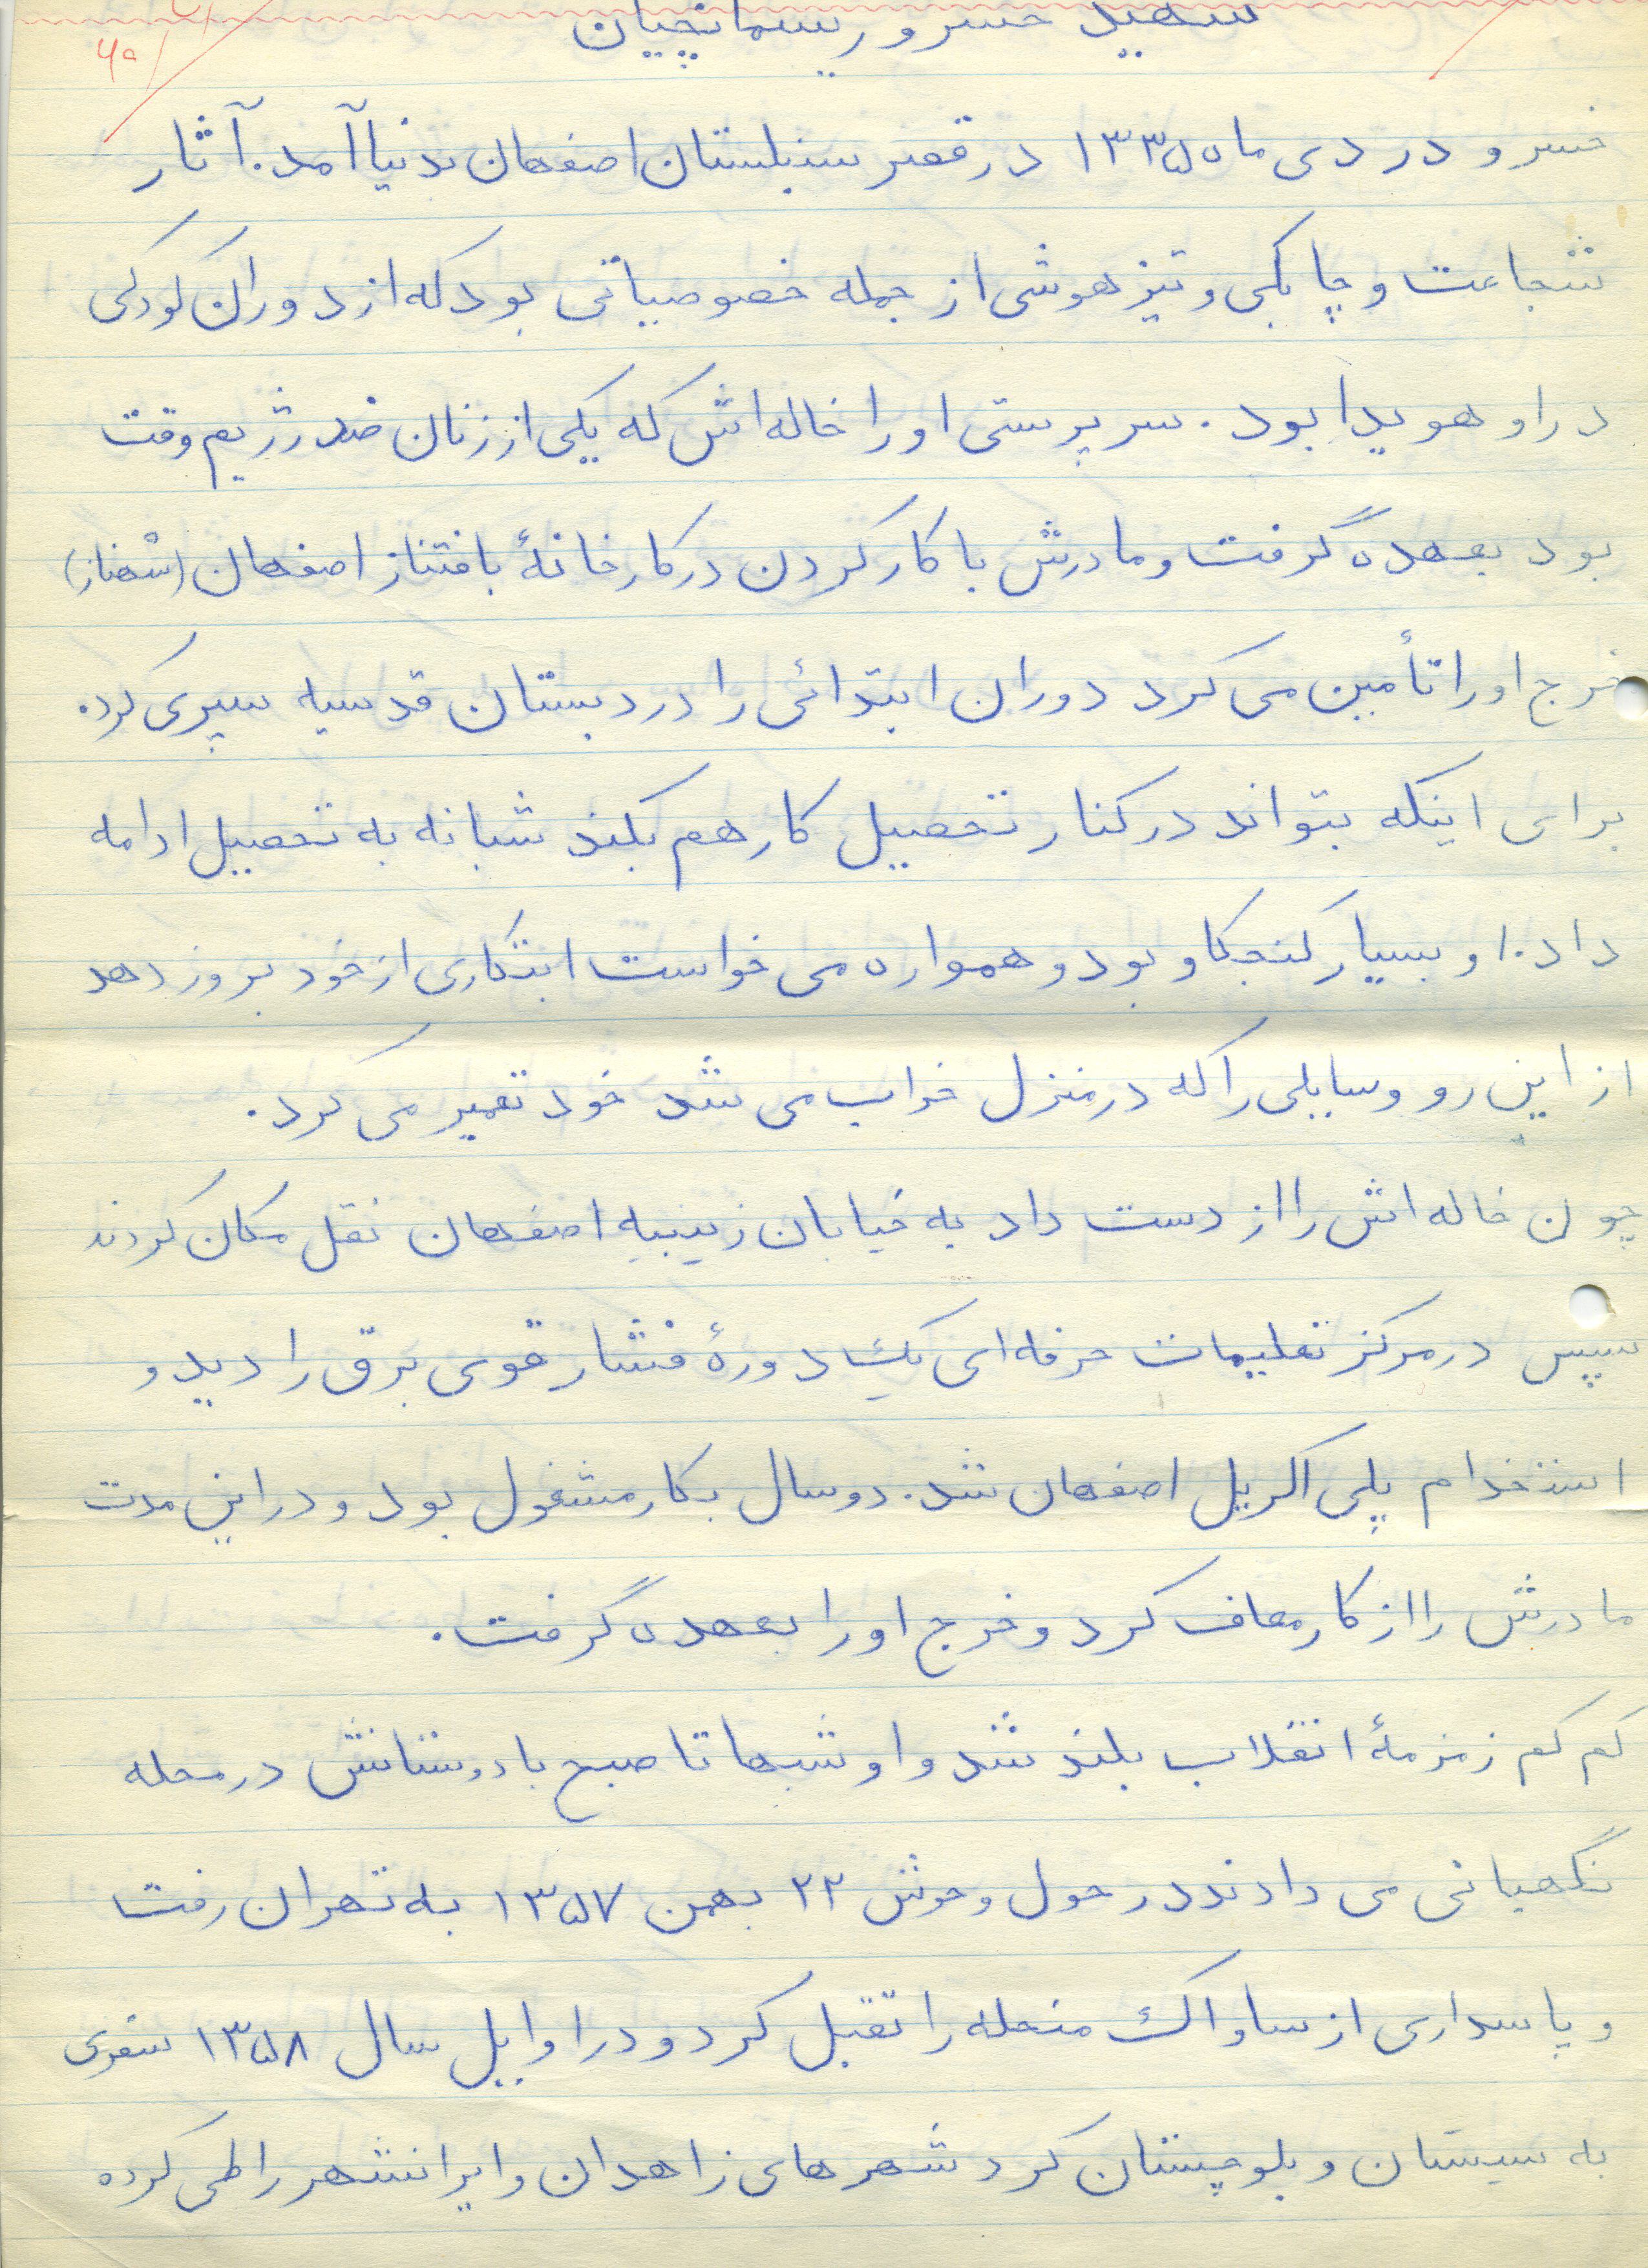 شهید خسرو ریسمانچیان
خسرو در دی ماه ۱۳۳۵ در قصر سنبلستان اصفهان بدنیا آمد. آثار
شجاعت و چابکی و تیزهوشی از جمله خصوصیاتی بود که از دوران کودکی
در او هویدا بود. سرپرستی او را خاله‌اش که یکی از زنان ضد رژیم وقت
بود بعهده گرفت و مادرش با کار کردن در کارخانهٔ بافتناز اصفهان (شهناز)
خرج او را تأمین می کرد دوران ابتدائی را در دبستان قدسیه سپری کرد.
برای اینکه بتواند در کنار تحصیل کار هم بکند شبانه به تحصیل ادامه
داد. او بسیار کنجکاو بود و همواره می خواست ابتکاری از خود بروز دهد
از این رو وسایلی را که در منزل خراب می شد خود تعمیر می کرد.
چون خاله اش را از دست داد به خیابان زینبیه اصفهان نقل مکان کردند
سپس در مرکز تعلیمات حرفه ای یک دورهٔ فشار قوی برق را دید و
استخدام پلی اکریل اصفهان شد. دو سال بکار مشغول بود و در این مدت
مادرش را از کار معاف کرد و خرج او را بعهده گرفت.
کم کم زمزمهٔ انقلاب بلند شد و او شبها تا صبح با دوستانش در محله
نگهبانی می دادند در حول و حوش ۲۲ بهمن ۱۳۵۷ به تهران رفت
و پاسداری از ساواک منحله را تقبل کرد و در اوایل سال ۱۳۵۸ سفری
به سیستان و بلوچستان کرد شهرهای زاهدان و ایرانشهر را طی کرده